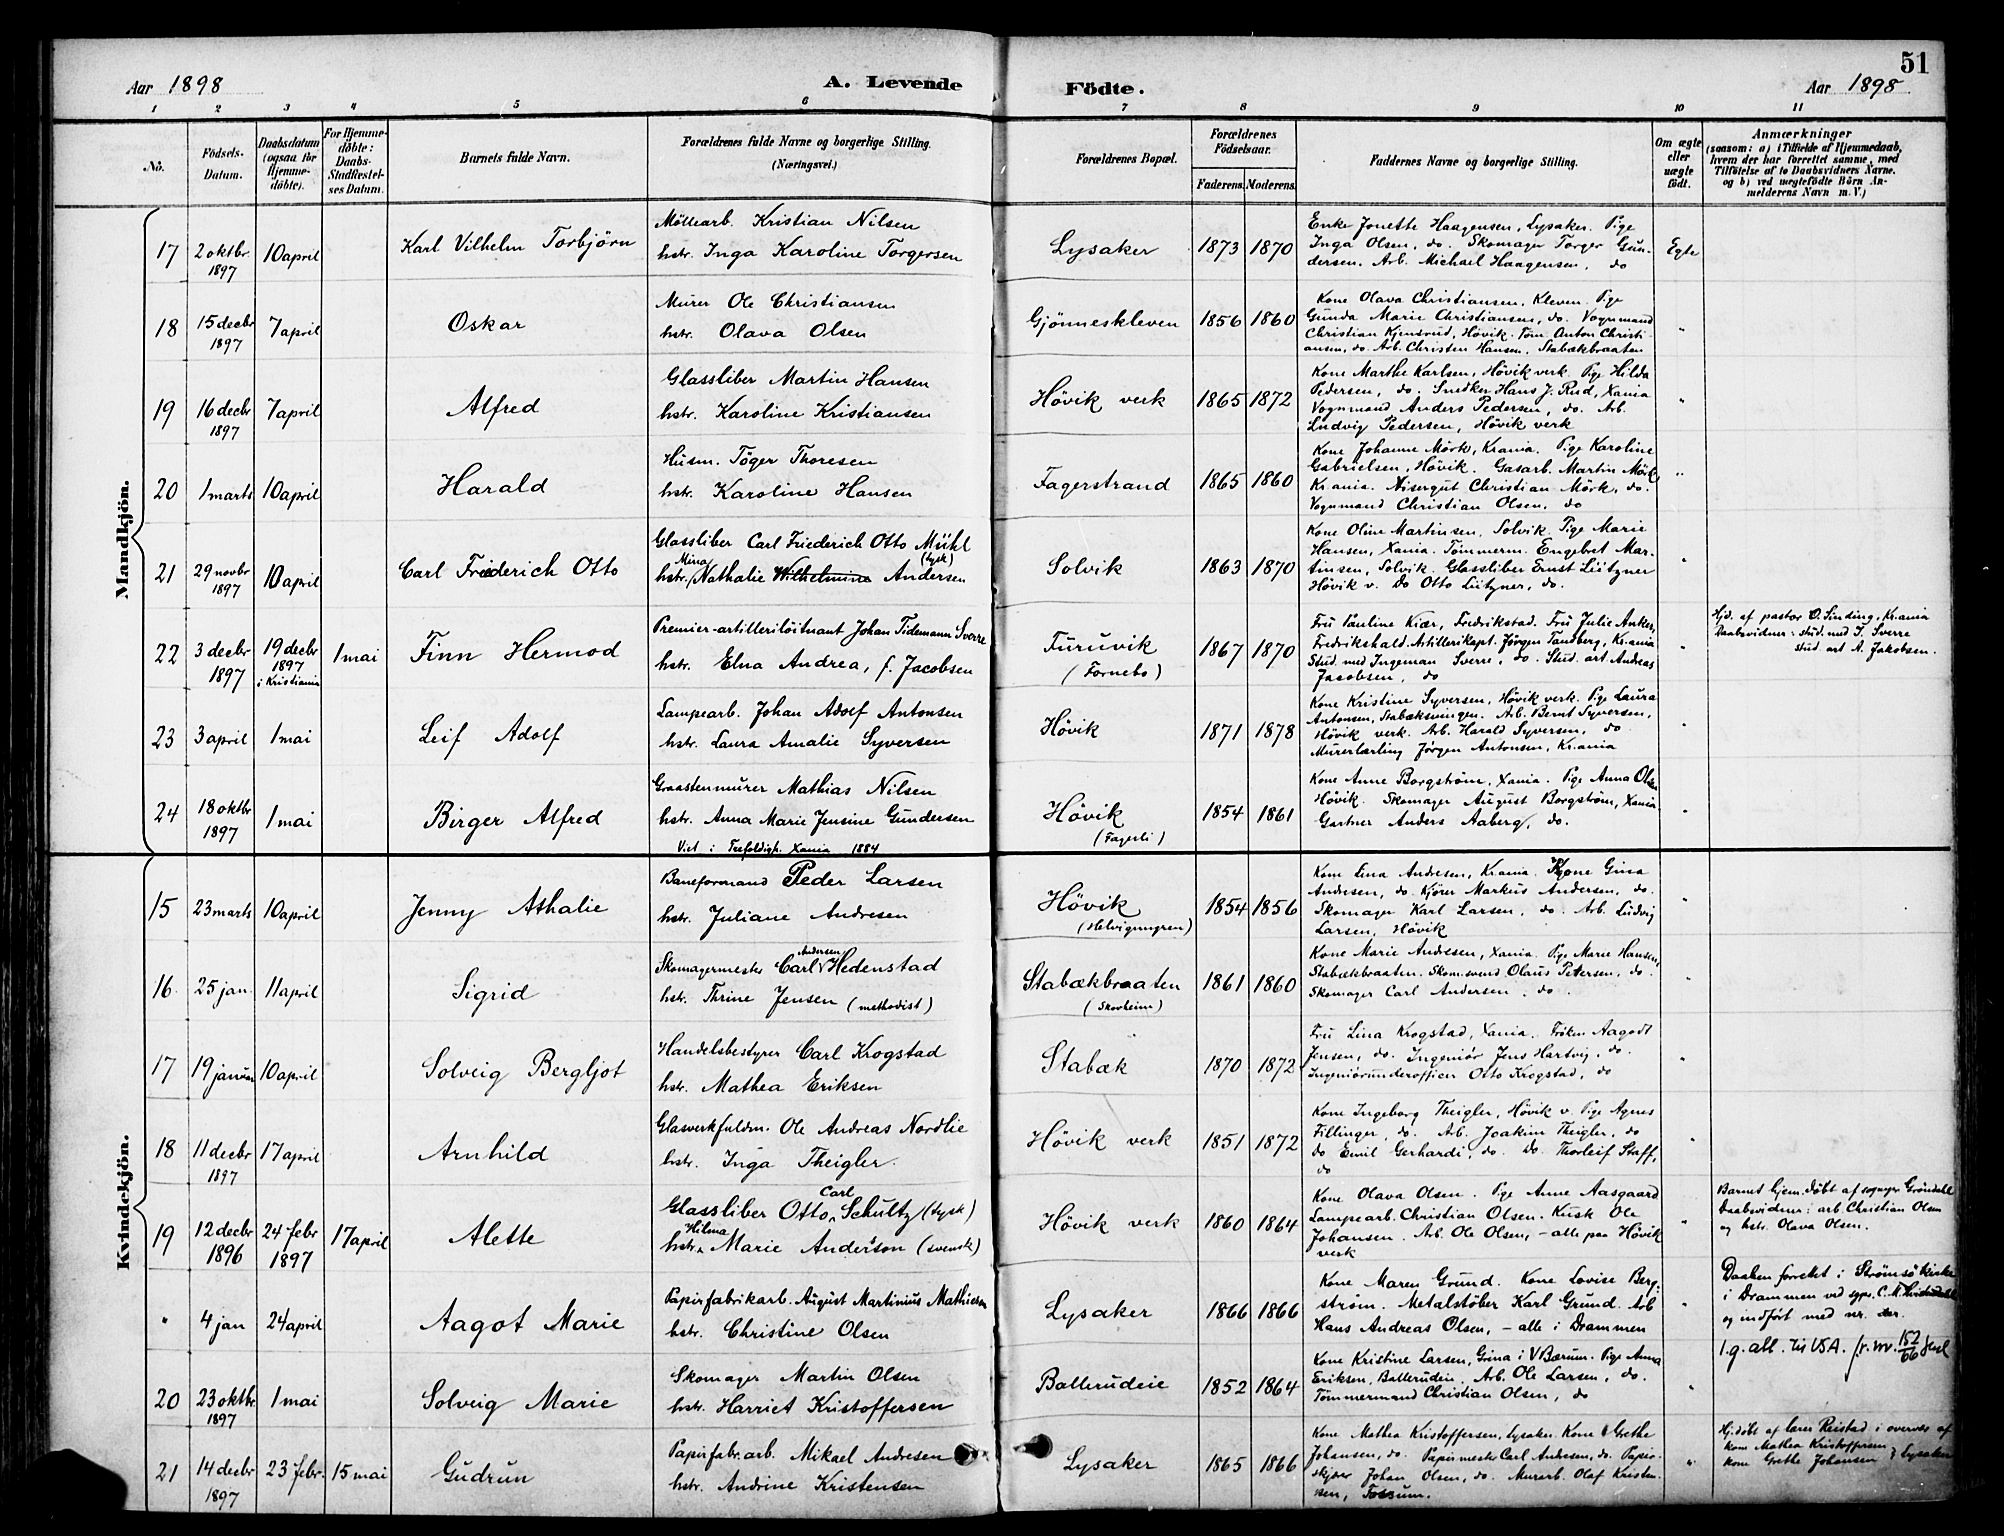 51
Aar 1898
A. Levende Födte.
Aar 1898
1 2 3 4 5 6 7 8 9 10 11
No.
Födsels-
Datum.
Daabsdatum
(ogsaa for
Hjemme-
döbte).
For Hjemme-
döbte:
Daabs-
Stadfæstel-
ses Datum.
Barnets fulde Navn.
Forældrenes fulde Navne og borgerlige Stilling.
(Næringsvei.)
Forældrenes Bopæl.
Forældrenes
Födselsaar.
Faderens. Moderens.
Faddernes Navne og borgerlige Stilling.
Om ægte
eller
uægte
födt.
Anmærkninger
(saasom: a) i Tilfælde af Hjemmedaab,
hvem der har forrettet samme, med
Tilföielse af to Daabsvidners Navne.
og b) ved uægtefödte Börn An-
melderens Navn m. V.)
Mandkjön.
17
2 oktbr.
1897
10 april
Karl Vilhelm Torbjörn
Möllearb. Kristian Nilsen
hstr. Inga Karoline Torgersen
Lysaker
1873 1870
Enke Jonette Haagensen, Lysaker. Pige
Inga Olsen, do. Skomager Torger Gun-
dersen. Arb. Michael Haagensen, do
Egte
18
15 decbr
1897
7 april
Oskar
Murer Ole Christiansen
hstr. Olava Olsen
Gjönneskleven
1856 1860
Kone Olava Christiansen, Kleven. Pige
Gunda Marie Christiansen, do. Vognmand
Christian Kjensrud, Hövik. Töm. Anton Christi-
ansen, do. Arb. Christen Hansen, Stabækbraaten
"
19
16 decbr
1897
7 april
Alfred
Glassliber Martin Hansen
hstr. Karoline Kristiansen
Hövik verk
1865 1872
Kone Marthe Karlsen, Hövik verk. Pige Hilda
Pedersen, do. Snedker Hans J. Rud, Xania
Vognmand Anders Pedersen, do. Arb.
Ludvig Pedersen, Hövik verk
"
20
1 marts
10 april
Harald
Husm. Töger Thoresen
hstr. Karoline Hansen
Fagerstrand
1865 1860
Kone Johanne Mörk, Krania. Pige Karoline
Gabrielsen, Hövik. Gasarb. Martin Mörk,
Krania. Visergut Christian Mörk, do.
Vognmand Christian Olsen, do
"
21
29 novbr
1897
10 april
Carl Friederich Otto
Glassliber Carl Friederich Otto Mühl
(tysk)
Mina
hstr. Nathalie Wilhelmine Andersen
Solvik
1863 1870
Kone Oline Martinsen, Solvik. Pige Marie
Hansen, Xania. Tömmerm. Engebret Mar-
tinsen, Solvik. Glassliber Ernst Lützner
Hövik v. Do Otto Lützner, do.
"
22
3 decbr
1897
19 decbr
1897
i Kristiania
1 mai
Finn Hermod
Premier-artilleriløitnant Johan Tidemann Sverre
hstr. Elna Andrea, f. Jacobsen
Furuvik
(Fornebo)
1867 1870
Fru Pauline Kiær, Fredrikstad. Fru Julie Anker,
Fredrikshald. Artillerikapt. Jörgen Tandberg, Krania
Stud. med Ingeman Sverre, do. Stud. art. Andreas
Jacobsen, do
"
Hjd. af pastor O. Sinding, Krania
Daabsvidner: stud. med J. Sverre
stud. art A. Jakobsen.
23
3 april
1 mai
Leif Adolf
Lampearb. Johan Adolf Antonsen
hstr. Laura Amalie Syversen
Hövik
1871 1878
Kone Kristine Syversen, Hövik verk. Pige Laura
Antonsen, Stabæksvingen. Arb. Bernt Syversen,
Hövik verk. Arb. Harald Syversen, do
Murerlærling Jörgen Antonsen, Krania
"
24
18 oktbr
1897
1 mai
Birger Alfred
Graastenmurer Mathias Nilsen
hstr. Anna Marie Jensine Gundersen
Viet i Trefoldigh. Xania 1884
Hövik
(Fagerli)
1854 1861
Kone Anne Borgström, Xania. Pige Anna Olsen
Hövik. Skomager August Borgström, Xania
Gartner Anders Aaberg, do.
"
Kvindekjön.
15
23 marts
10 april
Jenny Athalie
Baneformand Peder Larsen
hstr. Juliane Andresen
Hövik
1854 1856
Kone Lina Andresen, Krania. Kone Gina
Andersen, do. Kjörer Markus Andersen, do.
Skomager Karl Larsen, do. Arb. Ludvig
Larsen, Hövik
"
16
25 jan.
11 april
Sigrid
Andersen
Skomagermester Carl Hedenstad
hstr. Thrine Jensen (methodist)
Stabækbraaten
(Skovheim)
1861 1860
Kone Marie Andresen, Xania. Pige Marie Hansen,
Stabækbraaten. Skom.svend Olaus Petersen, do.
Skomager Carl Andersen, do.
"
17
19 januar
10 april
Solveig Bergljot
Handelsbestyrer Carl Krogstad
hstr. Mathea Eriksen
Stabæk
1870 1872
Fru Lina Krogstad, Xania. Fröken Aagodt
Jensen, do. Ingeniör Jens Hartvig, do.
Ingeniörunderofficer Otto Krogstad, do
"
18
11 decbr
1897
17 april
Arnhild
Glasverkfuldm. Ole Andreas Nordlie
hstr. Inga Theigler.
Hövik verk
1851 1872
Kone Ingeborg Theigler, Hövik v. Pige Agnes
Fillinger, do. Arb. Joakim Theigler, do
do Emil Gerhardi, do. Do. Thorleif Staff,
do
"
19
12 decbr
1896
24 febr
1897
17 april
Alette
Carl
Glassliber Otto Schultz (tysk)
Hilma
hstr. Marie Anderson (svensk)
Hövik verk
1860 1864
Kone Olava Olsen. Pige Anne Aasgaard
Lampearb. Christian Olsen. Kusk Ole
Johansen. Arb. Ole Olsen, - alle paa Hövik
verk
"
Barnet hjem.döbt af sognepr. Gröndahl
Daabsvidner: arb. Christian Olsen
og hstr. Olava Olsen.
"
4 jan
24 april
Aagot Marie
Papirfabrikarb. August Martinius Mathiesen
hstr. Christine Olsen
Lysaker
1866 1866
Kone Maren Grund. Kone Lovise Berg-
ström. Metalstöber Karl Grund. Arb
Hans Andreas Olsen, - alle i Drammen
"
Daaben forrettet i Strömsö kirke
i Drammen ved sgpr. C. M.
og indfört med nr. der.
20
23 oktbr.
1897
1 mai
Solveig Marie
Skomager Martin Olsen
hstr. Harriet Kristoffersen
Ballerudeie
1852 1864
Kone Kristine Larsen, Grina i V Bærum. Pige Anna
Eriksen, Ballerudeie. Arb. Ole Larsen, do.
Tömmermand Christian Olsen, do
"
l.g. att. til USA.
21
14 decbr
1897
23 febr.
15 mai
Gudrun
Papirfabr.arb. Mikael Andresen
hstr. Andrine Kristensen
Lysaker
1865 1866
Kone Mathea Kristoffersen, Lysaker. Kone Grethe
Johansen, do. Papirmester Carl Andresen, do. Papir-
skjærer Johan Olsen, do. Murarb. Olaf Kristen-
sen, Fossum.
"
Hj.döbt af lærer Reistad i overvær af
kone Mathea Kristoffersen
kone Grethe Johansen } Lysaker